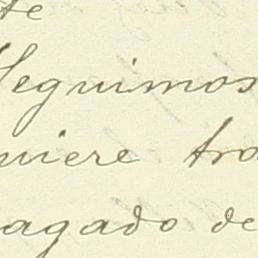 te
Seguimos
uiere tra
agado de